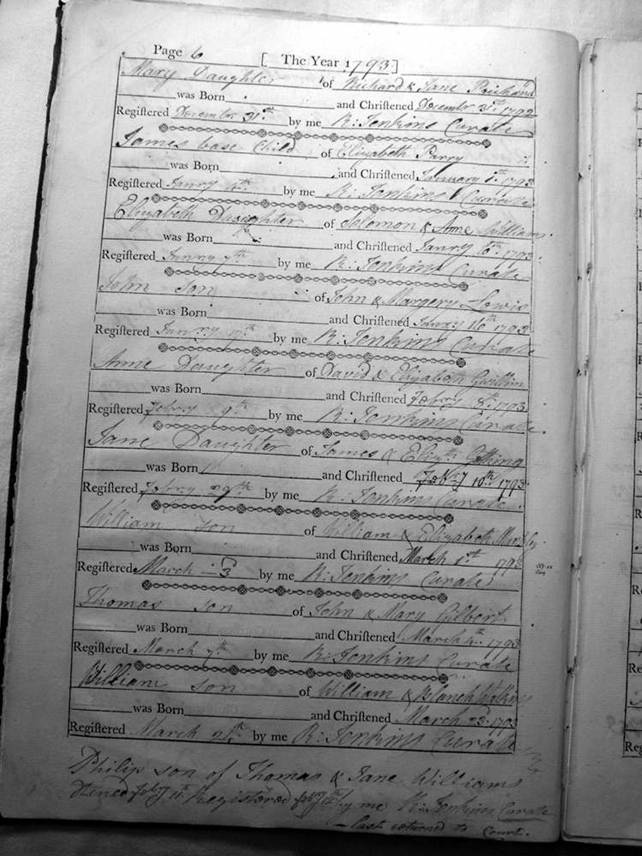 Page 6 [ The Year 1793 ]
Mary Daughter of Richard & Jane
was Born and Christened December 1792
Registered December 31st by me R: Jenkins Curate
James base Child of Elizabeth Parry
was Born and Christened January 1793
Registered Janry by me R: Jenkins Curate
Elizabeth Daughter of Solomon & Anne William
was Born and Christened Janry 6th 1793
Registered Janry 7th by me R: Jenkins Curate
John Son of John & Margery Lewis
was Born and Christened Janry 16th 1793
Registered Janry by me R: Jenkins Curate
Anne Daughter of David & Elizabeth
was Born and Christened Febry 8th 1793
Registered Febry 9th by me R: Jenkins Curate
Jane Daughter of James & Elizth
was Born and Christened Feb'y 10th 1793
Registered Febry by me R: Jenkins Curate
William son of William & Elizabeth
was Born and Christened March 1st 1793
Registered March 3 by me R: Jenkins Curate
Thomas son of John & Mary Gilbert
was Born and Christened March 1793
Registered March 7th by me R: Jenkins Curate
William son of William & Blanch
was Born and Christened March 23 1793
Registered March by me R: Jenkins Curate
Philip son of Thomas & Jane Williams
Registered by me R: Jenkins Curate
last returned to Court.